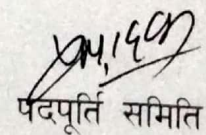 पदपूर्ति समिति